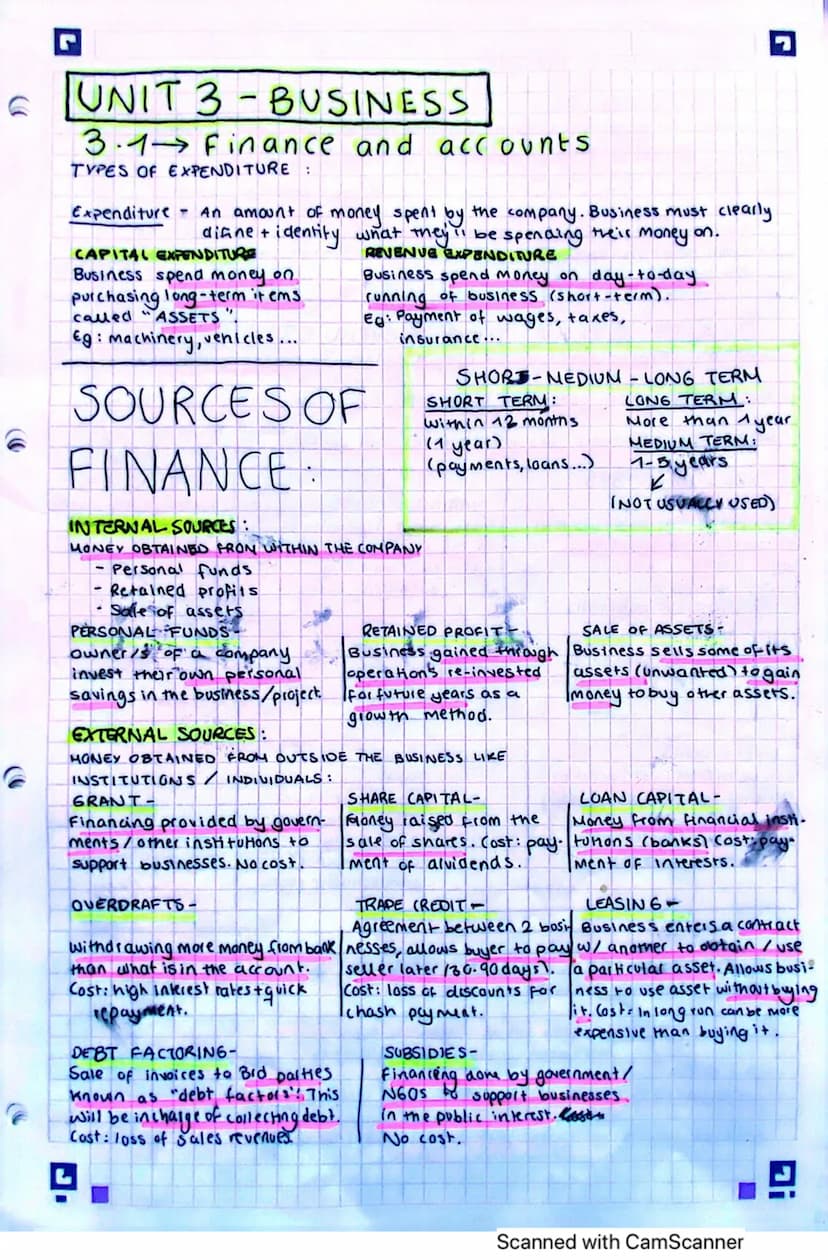 UNIT 3 - BUSINESS
3.1→ Finance and accounts
TYPES OF EXPENDITURE :
Expenditure = An amount of money spent by the company. Business must clearly
difine + identity what they'll be spending their money on.
CAPITAL EXPENDITURE
Business spend money on
purchasing long-term items
called "ASSETS".
Eg: machinery, vehicles...
REVENUE EXPENDITURE
Business spend money on day-to-day
running of business (short-term).
Eg: Payment of wages, taxes,
insurance...
SHORT-MEDIUM-LONG TERM
SHORT TERM:
within 12 months
(1 year)
(payments, loans...)
LONG TERM:
More than 1 year
MEDIUM TERM:
1-5 years
↙
(NOT USUALLY USED)
SOURCES OF
FINANCE:
INTERNAL SOURCES:
MONEY OBTAINED FROM WITHIN THE COMPANY
- Personal funds
- Retained profits
- Sale of assets
PERSONAL FUNDS-
owner/s of a company
invest their own personal
savings in the business/project
RETAINED PROFIT-
Business gained through
operations re-invested
for future years as a
growth method.
SALE OF ASSETS-
Business sells some of its
assets (unwanted) to gain
money to buy other assets.
EXTERNAL SOURCES:
MONEY OBTAINED FROM OUTSIDE THE BUSINESS LIKE
INSTITUTIONS / INDIVIDUALS:
GRANT-
Financing provided by govern-
ments/other institutions to
support businesses. No cost.
SHARE CAPITAL-
Money raised from the
sale of shares. Cost: pay-
ment of dividends.
LOAN CAPITAL-
Money from financial insti-
tutions (banks) Cost: pay-
ment of interests.
OVERDRAFTS-
withdrawing more money from bank
than what is in the account.
Cost: high interest rates + quick
repayment.
TRADE CREDIT-
Agreement between 2 busi
nesses, allows buyer to pay
seller later (30-90 days).
Cost: loss of discounts for
chash payment.
LEASING-
Business enters a contract
w/ another to obtain / use
a particular asset. Allows busi-
ness to use asset without buying
it. Cost: In long run can be more
expensive than buying it.
DEBT FACTORING-
Sale of invoices to 3rd parties
known as "debt factors". This
will be incharge of collecting debt.
Cost: loss of sales revenues
SUBSIDIES-
Financing done by government/
NGOs to support businesses
in the public interest.
No cost.
Scanned with CamScanner